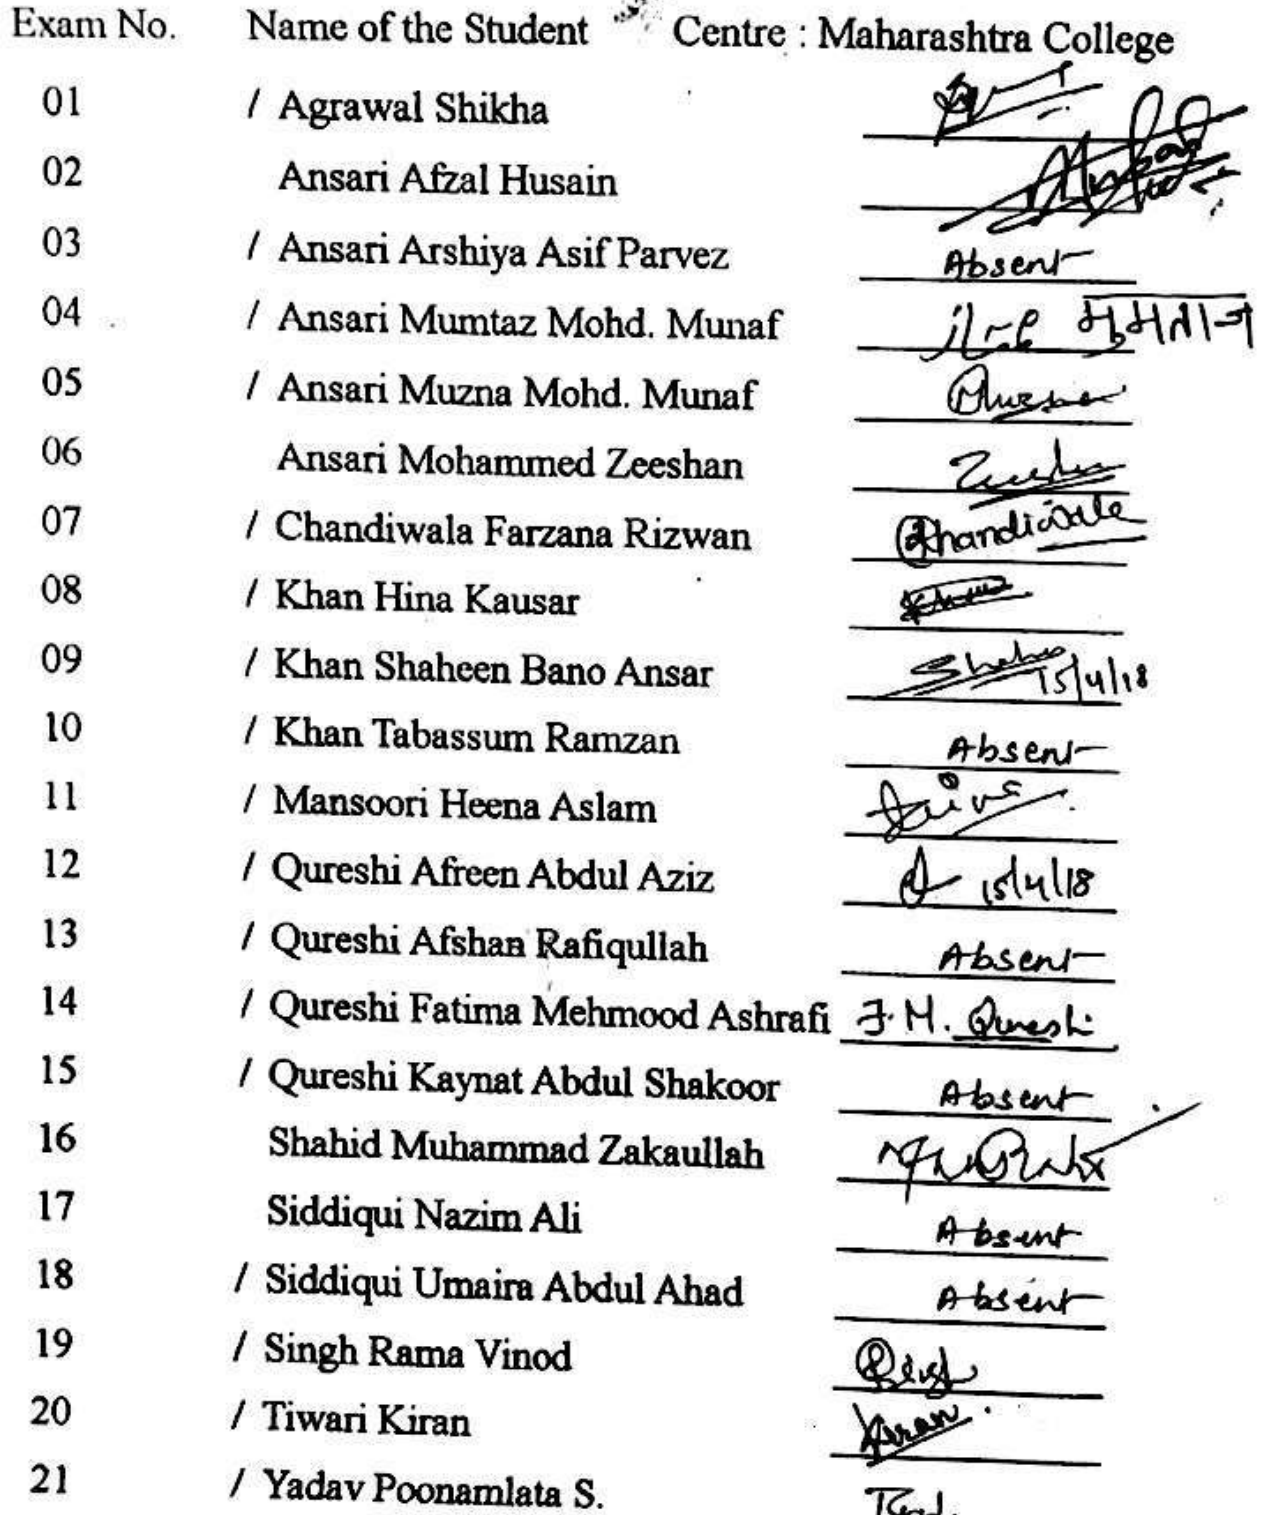 Exam No. Name of the Student Centre : Maharashtra College
01 / Agrawal Shikha
02 Ansari Afzal Husain
03 / Ansari Arshiya Asif Parvez Absent
04 / Ansari Mumtaz Mohd. Munaf ممتاز मुमताज
05 / Ansari Muzna Mohd. Munaf
06 Ansari Mohammed Zeeshan
07 / Chandiwala Farzana Rizwan Chandiwala
08 / Khan Hina Kausar
09 / Khan Shaheen Bano Ansar 15/4/18
10 / Khan Tabassum Ramzan Absent
11 / Mansoori Heena Aslam
12 / Qureshi Afreen Abdul Aziz 15/4/18
13 / Qureshi Afshan Rafiqullah Absent
14 / Qureshi Fatima Mehmood Ashrafi F.M. Qureshi
15 / Qureshi Kaynat Abdul Shakoor Absent
16 Shahid Muhammad Zakaullah
17 Siddiqui Nazim Ali Absent
18 / Siddiqui Umaira Abdul Ahad Absent
19 / Singh Rama Vinod
20 / Tiwari Kiran Kiran
21 / Yadav Poonamlata S.